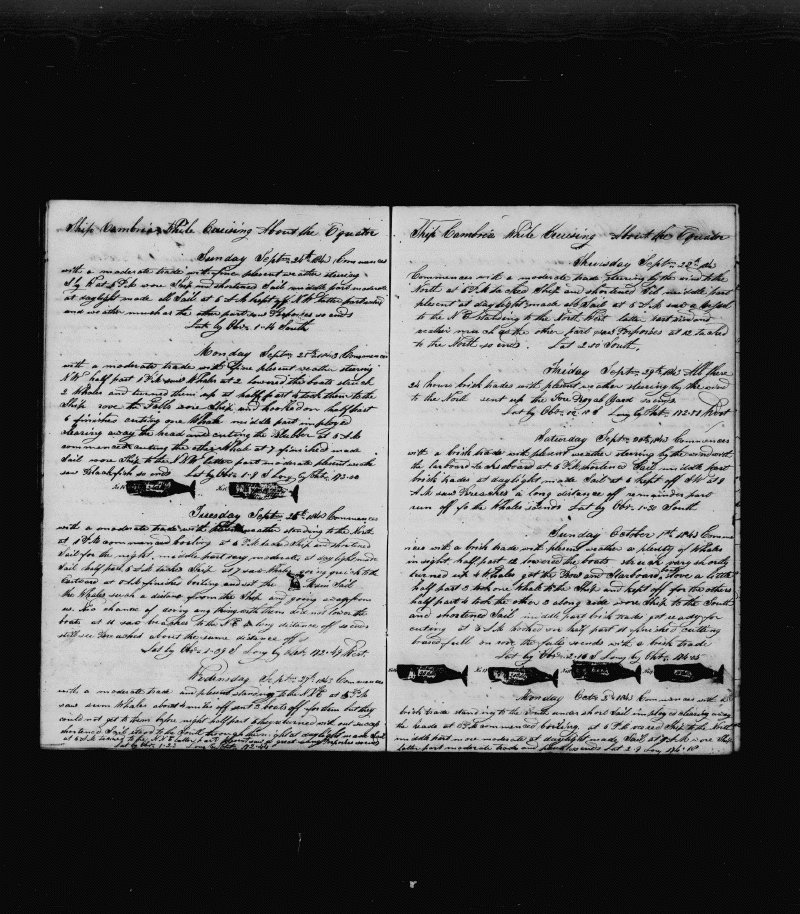 Ship Cambria While Cruising About the Equator
Sunday Sept 24th 1843 Commences
with a moderate trade with fine plesent weather steering
S by W at 6 P.k wore Ship and shortened Sail middle part moderate
at daylight made all Sail at 6 A.k kept off N.W latter part wind
and weather much as the other part saw Porpoises so ends
Lat by Obs. 1-14 South
Monday Sept 25th 1843 Commences
with a moderate trade with fine plesent weather steering
NW half past 1 P.k saw Whales at 2 lowered the boats struck
2 Whales and turned them up at half past 4 took them to the
Ship rove the Falls wore Ship and hooked on half past
6 finished cutting one Whale middle part imployed
clearing away the head and cutting the Blubber at 5 A.k
commenced cutting the other Whale at 7 finished made
Sail wore Ship to the NW latter part moderate plesent weather
saw Blackfish so ends Lat by Obs 1-9 S Long by Chr. 173-20
Tuesday Sept 26th 1843 Commences
with a moderate trade with weather standing to the North
at 1 P.k commenced boiling at 6 P.k tacked Ship and shortened
Sail for the night middle part very moderate at daylight made
Sail half past 5 A.k tacked Ship at 7 saw Whales going quick to the
Eastward at 9 A.k finished boiling and set the Main Sail
the Whales such a distance from the Ship and going away from
us No chance of doing any thing with them does not lower the
boats at 11 saw breaches to the N.E a long distance off so ends
still see Breaches about the same distance off
Lat by Obs. 1-09 S Long by Chr. 172-49 West
Wednesday Sept 27th 1843 Commences
with a moderate trade and plesent standing to the N.E at 5 P.k
saw Sperm Whales about 4 miles off sent 3 boats off for them but they
could not get to them before night half past 6 they returned with out success
shortened Sail stood to the South through the night at daylight made Sail
at 6 A.k to the N.E latter part plesent saw a great many Porpoises so ends
Lat by Obs. 1-33 Long by Chr. 172-46
Ship Cambria While Cruising About the Equator
Thursday Sept 28th 1843
Commences with a moderate trade steering by the wind to the
North at 6 P.k tacked Ship and shortened Sail middle part
plesent at daylight made all Sail at 6 A.k saw a Vessel
to the N.E steering to the North West latter part wind and
weather much as the other part saw Porpoises at 12 tacked
to the North so ends Lat 2-20 South
Friday Sept 29th 1843 All these
24 hours brisk trades with plesent weather steering by the wind
to the North sent up the Fore Royal Yard so ends
Lat by Obs. 12 10 S Long by Chr. 172-58 West
Saturday Sept 30th 1843 Commences
with a brisk trade with plesent weather steering by the wind with
the larboard tacks aboard at 6 P.k shortened Sail middle part
brisk trades at daylight made Sail at 6 kept off SW at 8
A.k saw Breaches a long distance off remainder part
run off for the Whales so ends Lat by Obs. 1-50 South
Sunday October 1st 1843 Comme
nces with a brisk trade with plesent weather a plenty of Whales
in sight half past 12 lowered the boats struck very shortly
turned up 4 Whales got the Bow and Starboard boats stove a little
half past 3 took one Whale to the Ship and kept off for the others
half past 4 took the other 3 along side wore Ship to the South
and shortened Sail middle part brisk trades got ready for
cutting at 5 A.k hooked on half past 11 finished cutting
board full on with the falls so ends with a brisk trade
Lat by Obs. 2-16 S Long by Chr. 174-45
Monday Octr 2d 1843 Commences with a
brisk trade standing to the South under short Sail imployed clearing away
the heads at 6 P.k commenced boiling at 6 P.k wore Ship to the North
middle part more moderate at daylight made Sail at 9 A.k wore Ship
latter part moderate trade and so ends Lat 2-9 Long 174-10